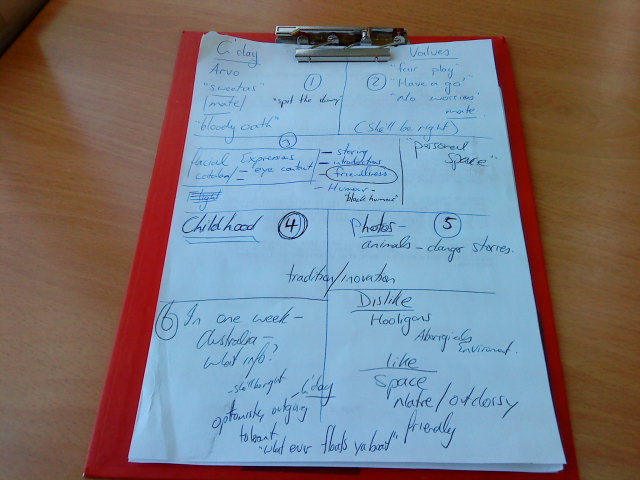 G'day
Arvo
"sweetas"
/mate/
"bloody oath"
1
"spot the
Values
2
"fair play"
"Have a go"
"No worries"
mate
(She'll be right)
3
facial Expressions
- eye contact
- staring
- introductions
- friendliness
- Humour -
"black humour"
"personal
space"
Childhood
4
Photos -
5
animals - danger stories.
tradition/inovation
6
In one week -
Australia -
what info?
- she'll be right
- G'day
outgoing
"what ever floats ya boat"
Dislike
Hooligans
Aboriginals
Like
Space
Natre/outdoorsy
friendly